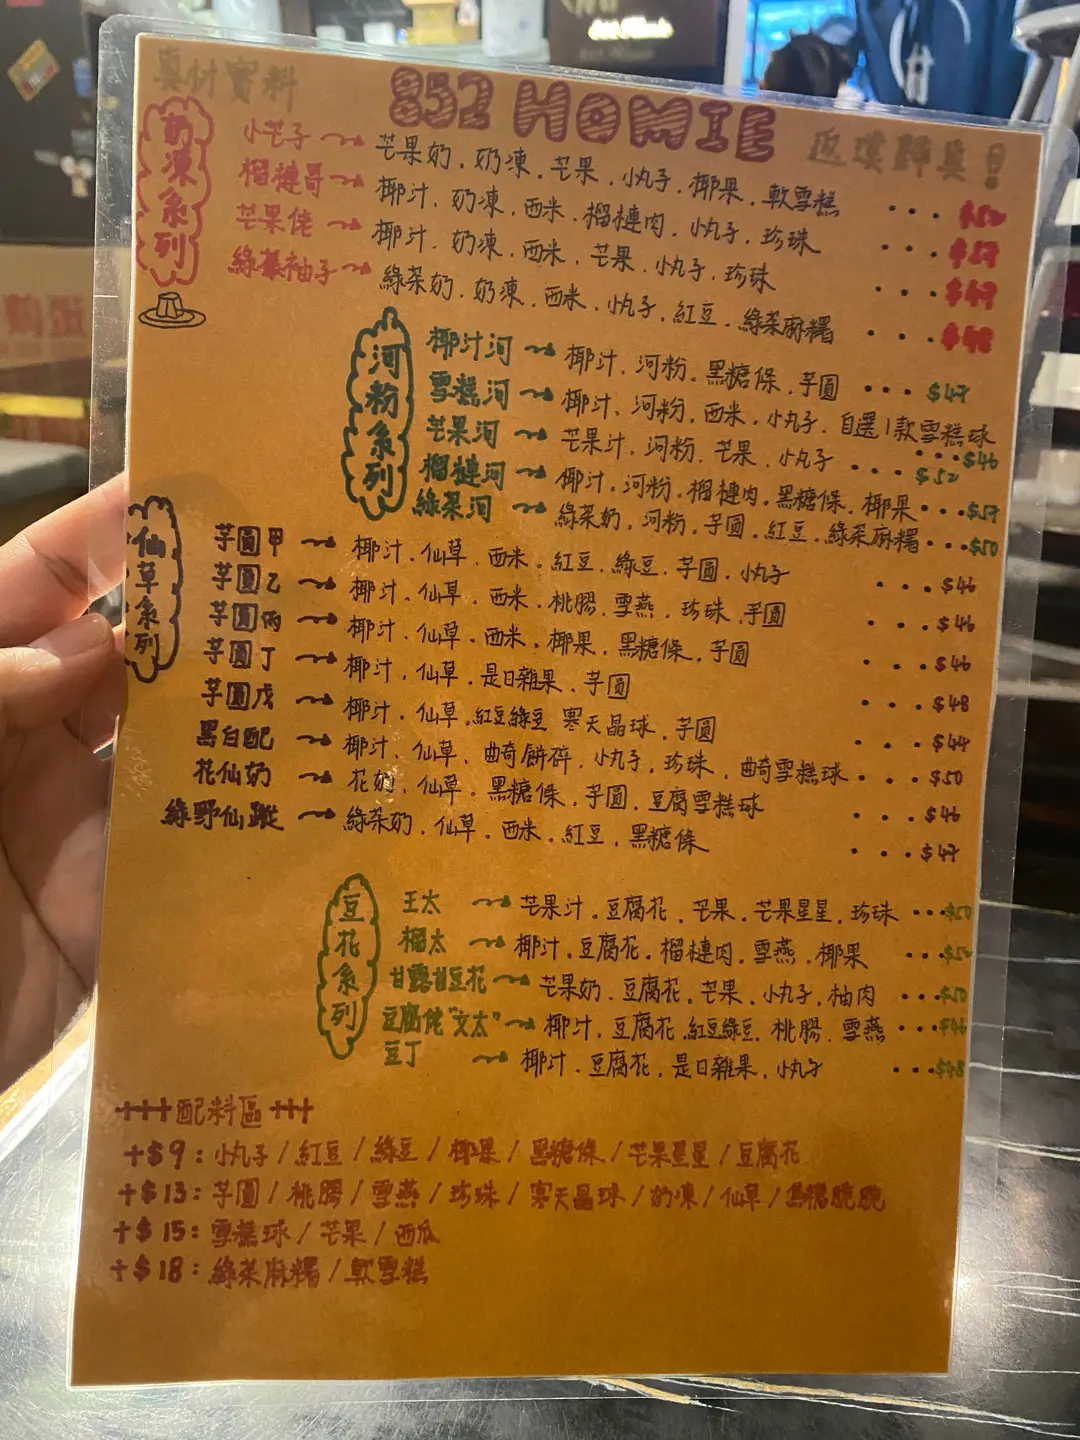 真材實料
852 HOMIE
返璞歸真!
奶凍系列
小芒子 芒果奶.奶凍.芒果.小丸子.椰果.軟雪糕 ... $50
榴槤哥 椰汁.奶凍.西米.榴槤肉.小丸子.珍珠 ... $57
芒果佬 椰汁.奶凍.西米.芒果.小丸子.珍珠 ... $49
綠茶柚子 綠茶奶.奶凍.西米.小丸子.紅豆.綠茶麻糬 ... $48
河粉系列
椰汁河 椰汁.河粉.黑糖條.芋圓 ... $47
雪糕河 椰汁.河粉.西米.小丸子.自選1款雪糕球 ... $46
芒果河 芒果汁.河粉.芒果.小丸子 ... $52
榴槤河 椰汁.河粉.榴槤肉.黑糖條.椰果 ... $57
綠茶河 綠茶奶.河粉.芋圓.紅豆.綠茶麻糬 ... $50
仙草系列
芋圓甲 椰汁.仙草.西米.紅豆.綠豆.芋圓.小丸子 ... $46
芋圓乙 椰汁.仙草.西米.桃膠.雪燕.珍珠.芋圓 ... $46
芋圓丙 椰汁.仙草.西米.椰果.黑糖條.芋圓 ... $46
芋圓丁 椰汁.仙草.是日雜果.芋圓 ... $48
芋圓戊 椰汁.仙草.紅豆綠豆 寒天晶球.芋圓 ... $44
黑白配 椰汁.仙草.曲奇餅碎.小丸子.珍珠.曲奇雪糕球 ... $50
花仙奶 花奶.仙草.黑糖條.芋圓.豆腐雪糕球 ... $46
綠野仙蹤 綠茶奶.仙草.西米.紅豆.黑糖條 ... $47
豆花系列
王太 芒果汁.豆腐花.芒果.芒果星星.珍珠 ...
榴太 椰汁.豆腐花.榴槤肉.雪燕.椰果 ...
甘露甘豆花 芒果奶.豆腐花.芒果.小丸子.柚肉 ...
豆腐佬"文太" 椰汁.豆腐花.紅豆綠豆.桃膠.雪燕 ... $46
豆丁 椰汁.豆腐花.是日雜果.小丸子 ... $48
+++配料區+++
+$9:小丸子/紅豆/綠豆/椰果/黑糖條/芒果星星/豆腐花
+$13:芋圓/桃膠/雪燕/珍珠/寒天晶球/奶凍/仙草/烏糖脆脆
+$15:雪糕球/芒果/西瓜
+$18:綠茶麻糬/軟雪糕